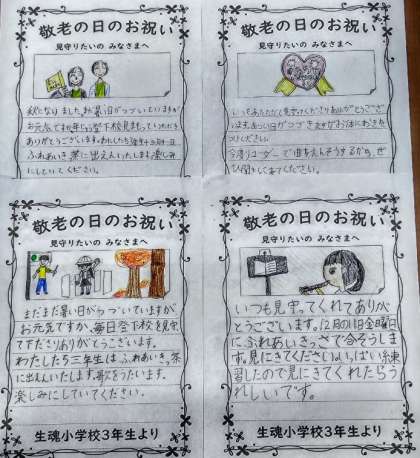 敬老の日のお祝い
見守りたいの みなさまへ
秋になりました。お暑い日がつづいていますが
お元気ですか。毎日登下校見守っていただき
ありがとうございます。わたしたち
ふれあいきっ茶に出えんいたします。楽しみ
にしていてください。
敬老の日のお祝い
見守りたいの みなさまへ
いつもあんぜんに見守ってくださりありがとうござ
います。あつい日がつづきますがお体にお気
つけください。
今度リコーダーで曲をえんそうするから、ぜ
ひ聞きにきてください。
敬老の日のお祝い
見守りたいの みなさまへ
まだまだ暑い日がつづいていますが
お元気ですか。毎日登下校を見守っ
て下さりありがとうございます。
わたしたち三年生は、ふれあいきっ茶
に出えんいたします。歌をうたいます。
楽しみにしていてください。
生魂小学校3年生より
敬老の日のお祝い
見守りたいの みなさまへ
いつも見守ってくれてありが
とうございます。12月の1日金曜日
にふれあいきっさで合そうしま
す。見にきてください。いっぱい練
習したので見にきてくれたらう
れしいです。
生魂小学校3年生より